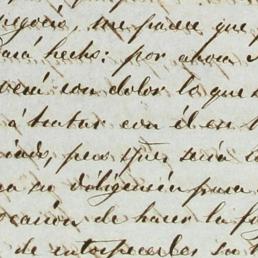 negocio, me parece que
ará hecho: por ahora
verá con dolor lo que
á tratar con él en
pues que sería
su diligencia para
ocasión de hacer la
de entorpecerles su